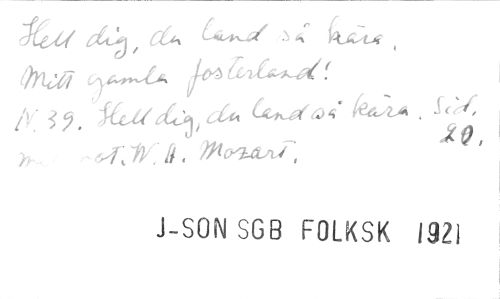 Hell dig, du land så kära.
Mitt gamla fosterland!
N. 39. Hell dig, du land så kära. Sid. 20.
not. W. A. Mozart.
J-SON SGB FOLKSK 1921